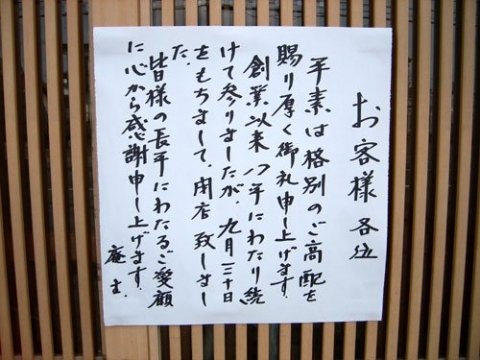 お客様 各位
平素は格別のご高配を
賜り厚く御礼申し上げます.
創業以来 八年にわたり続
けて参りましたが、九月三十日
をもちまして、閉店 致しまし
た.
皆様の長年にわたるご愛顧
に心から感謝申し上げます.
庵 主.